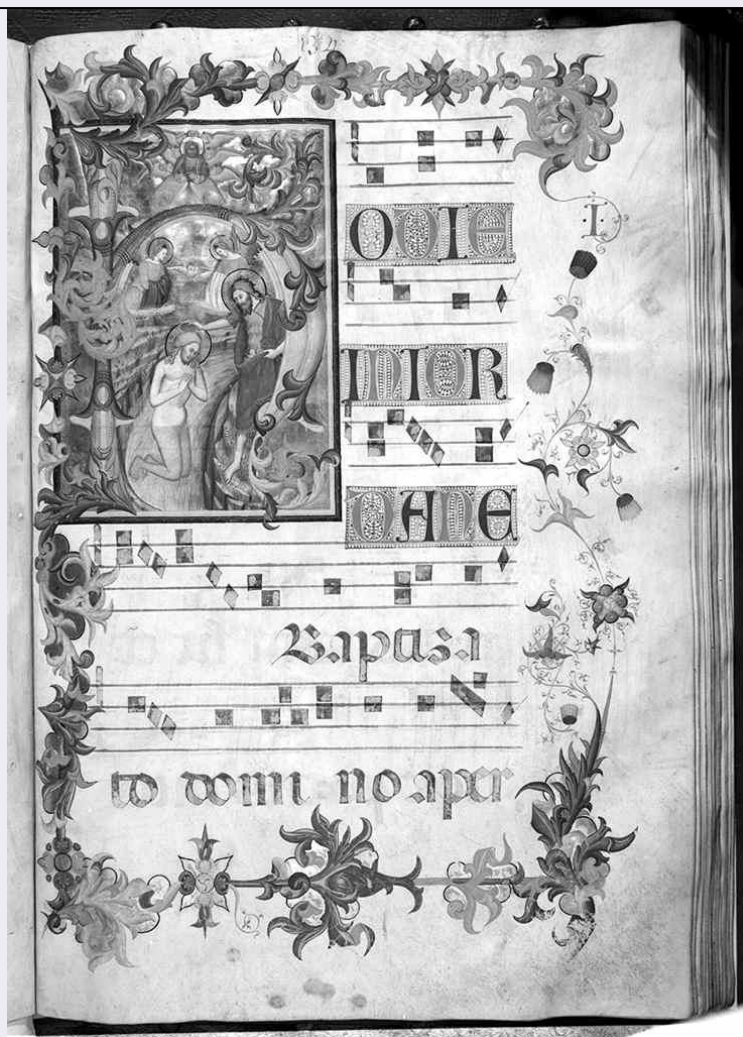 .I.
HODIE
INIOR
DANE
Baptiza
to domi no aper